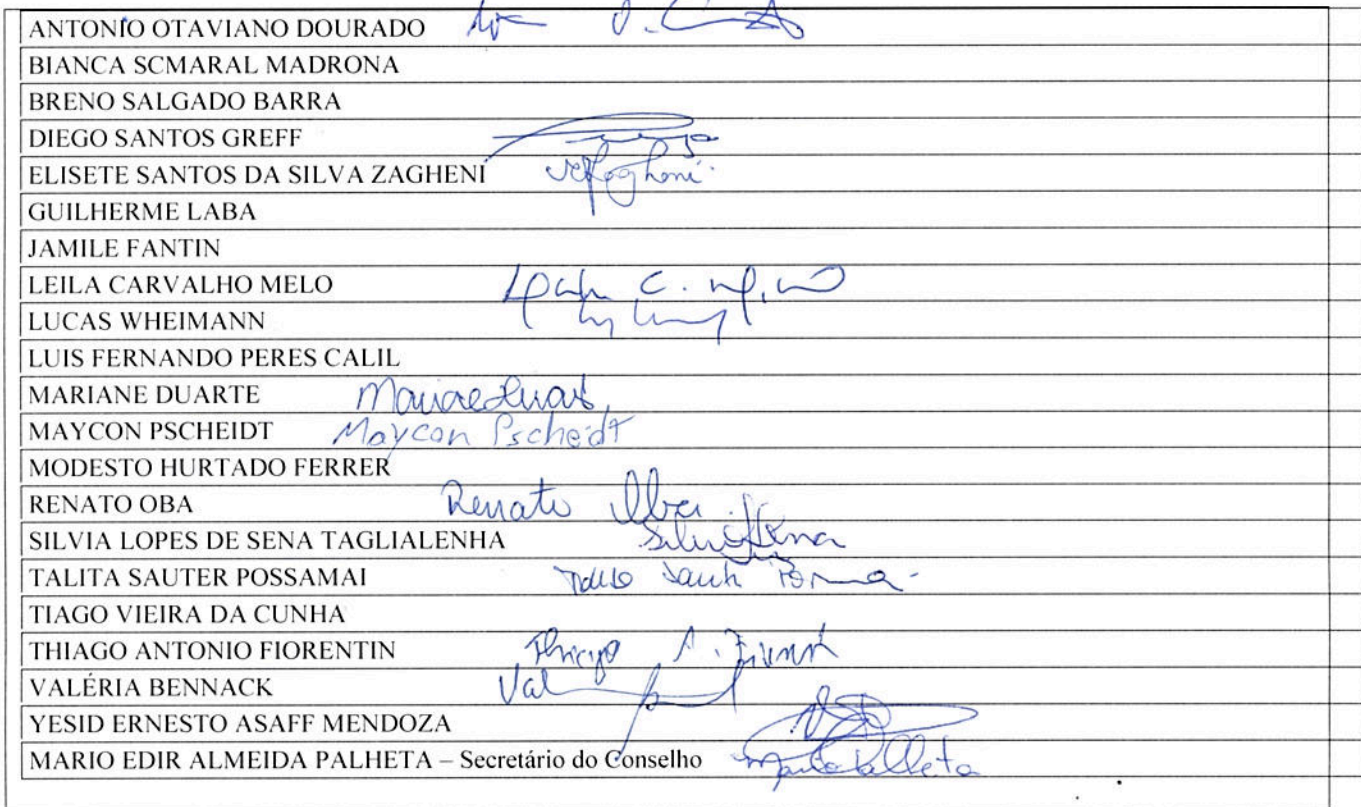 ANTONIO OTAVIANO DOURADO
BIANCA SCMARAL MADRONA
BRENO SALGADO BARRA
DIEGO SANTOS GREFF
ELISETE SANTOS DA SILVA ZAGHENI
GUILHERME LABA
JAMILE FANTIN
LEILA CARVALHO MELO
LUCAS WHEIMANN
LUIS FERNANDO PERES CALIL
MARIANE DUARTE
MAYCON PSCHEIDT Maycon Pscheidt
MODESTO HURTADO FERRER
RENATO OBA Renato Oba
SILVIA LOPES DE SENA TAGLIALENHA
TALITA SAUTER POSSAMAI
TIAGO VIEIRA DA CUNHA
THIAGO ANTONIO FIORENTIN
VALÉRIA BENNACK
YESID ERNESTO ASAFF MENDOZA
MARIO EDIR ALMEIDA PALHETA – Secretário do Conselho